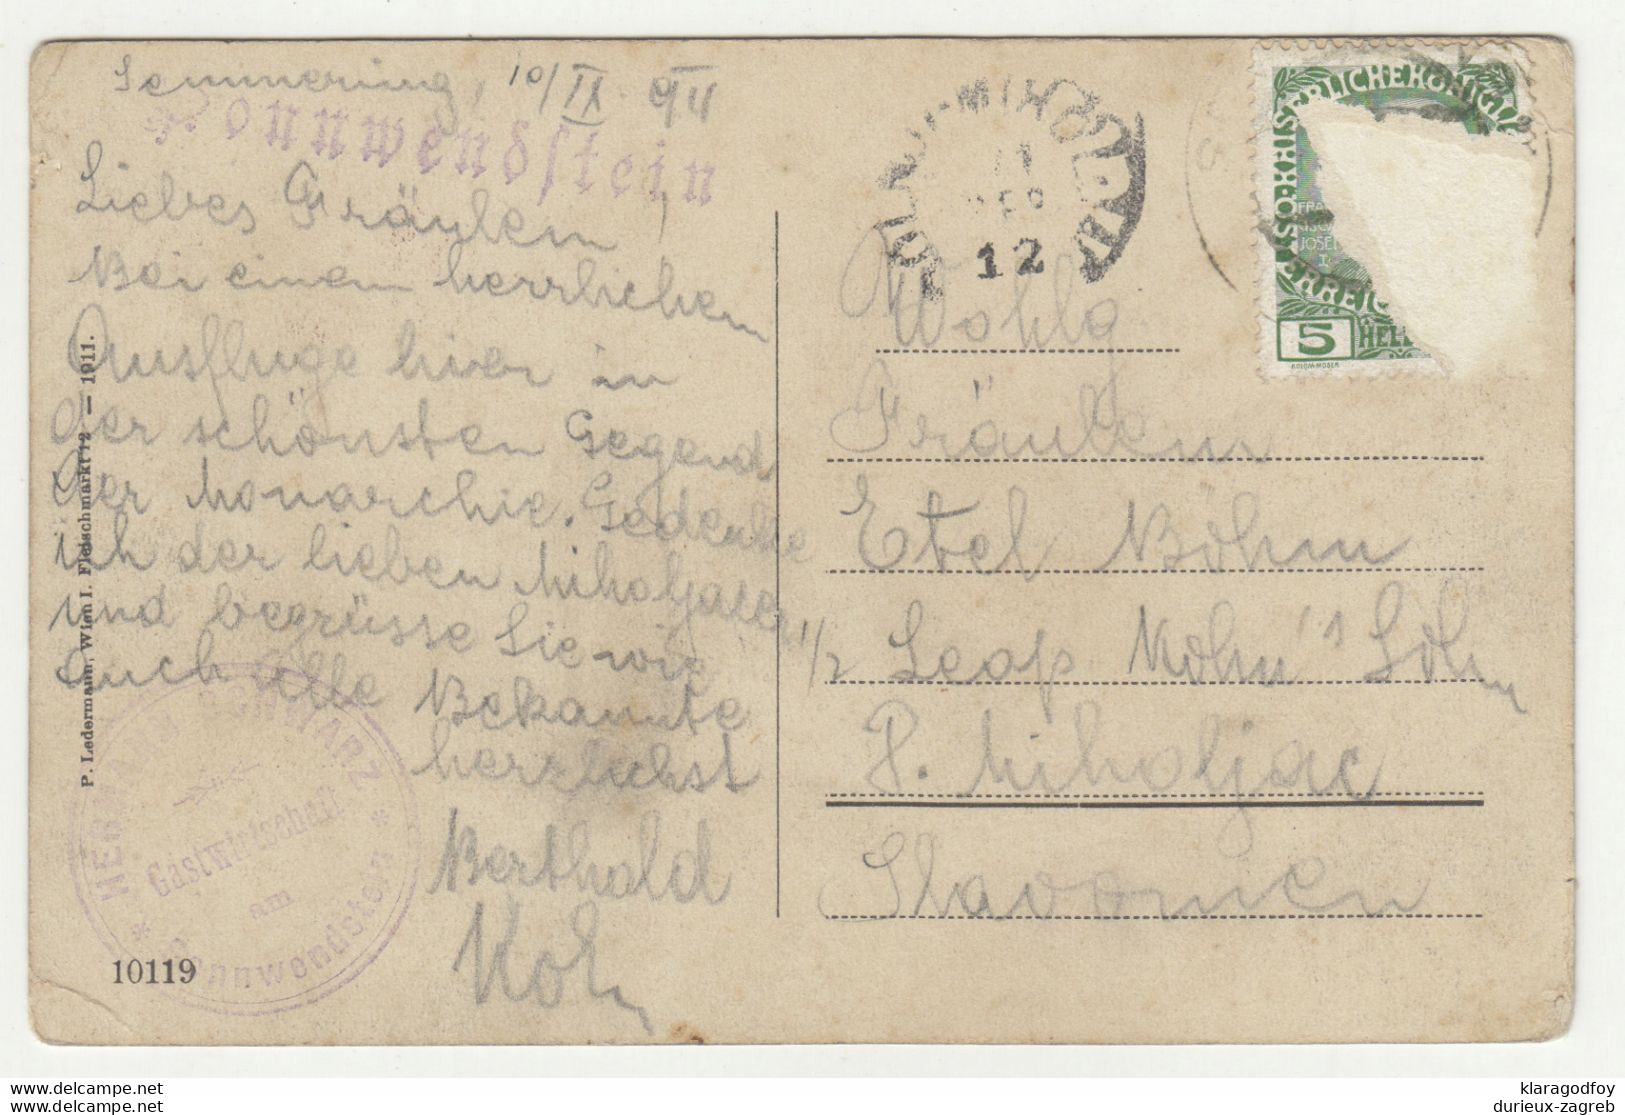 Semmering, 10/IX 911
Sonnwendstein
Liebes Fräulein!
Bei einem herrlichen
Ausfluge hier in
der schönsten Gegend
der Monarchie. Gedenke
ich der lieben Miholjacer
und begrüsse Sie wie
auch alle Bekannte
herzlichst
Berthold
Koh
HERMANN SCHWARZ
Gastwirtschaft
am
Sonnwendstein
10119
P. Ledermann, Wien I. Fleischmarkt 12 — 1911.
12
KAISERLICHE KÖNIGL
ÖSTERREICH
FRANZ
JOSEF
I.
5 HELL
KOLOM·MOSER
Wohlg
Fräulein
Etel Böhm
1/2 Leop Kohn's Söhn
P. Miholjac
Slavonien
klaragodfoy
durieux-zagreb
https://www.delcampe.net
https://www.delcampe.net